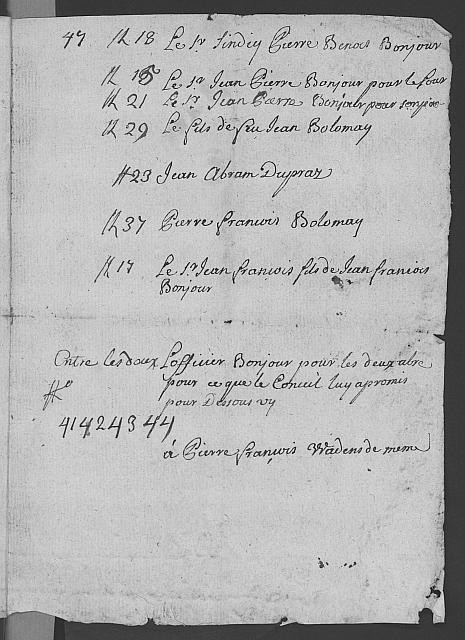 47 # 18 Le Sr Sindicq Pierre Benoit Bonjour
# 16 Le Sr Jean Pierre Bonjour pour le four
# 21 Le Sr Jean Pierre Bonjour pour
# 29 Le fils de feu Jean Bolomay
# 23 Jean Abram Dupraz
# 37 Pierre francois Bolomay
# 17 Le Sr Jean francois fils de Jean francois
Bonjour
Entre les deux Lofficier Bonjour pour les deux
# pour ce que le Conseil luy a promis
pour Dessous vy
41 42 43 44
à Pierre françois Wadens de meme